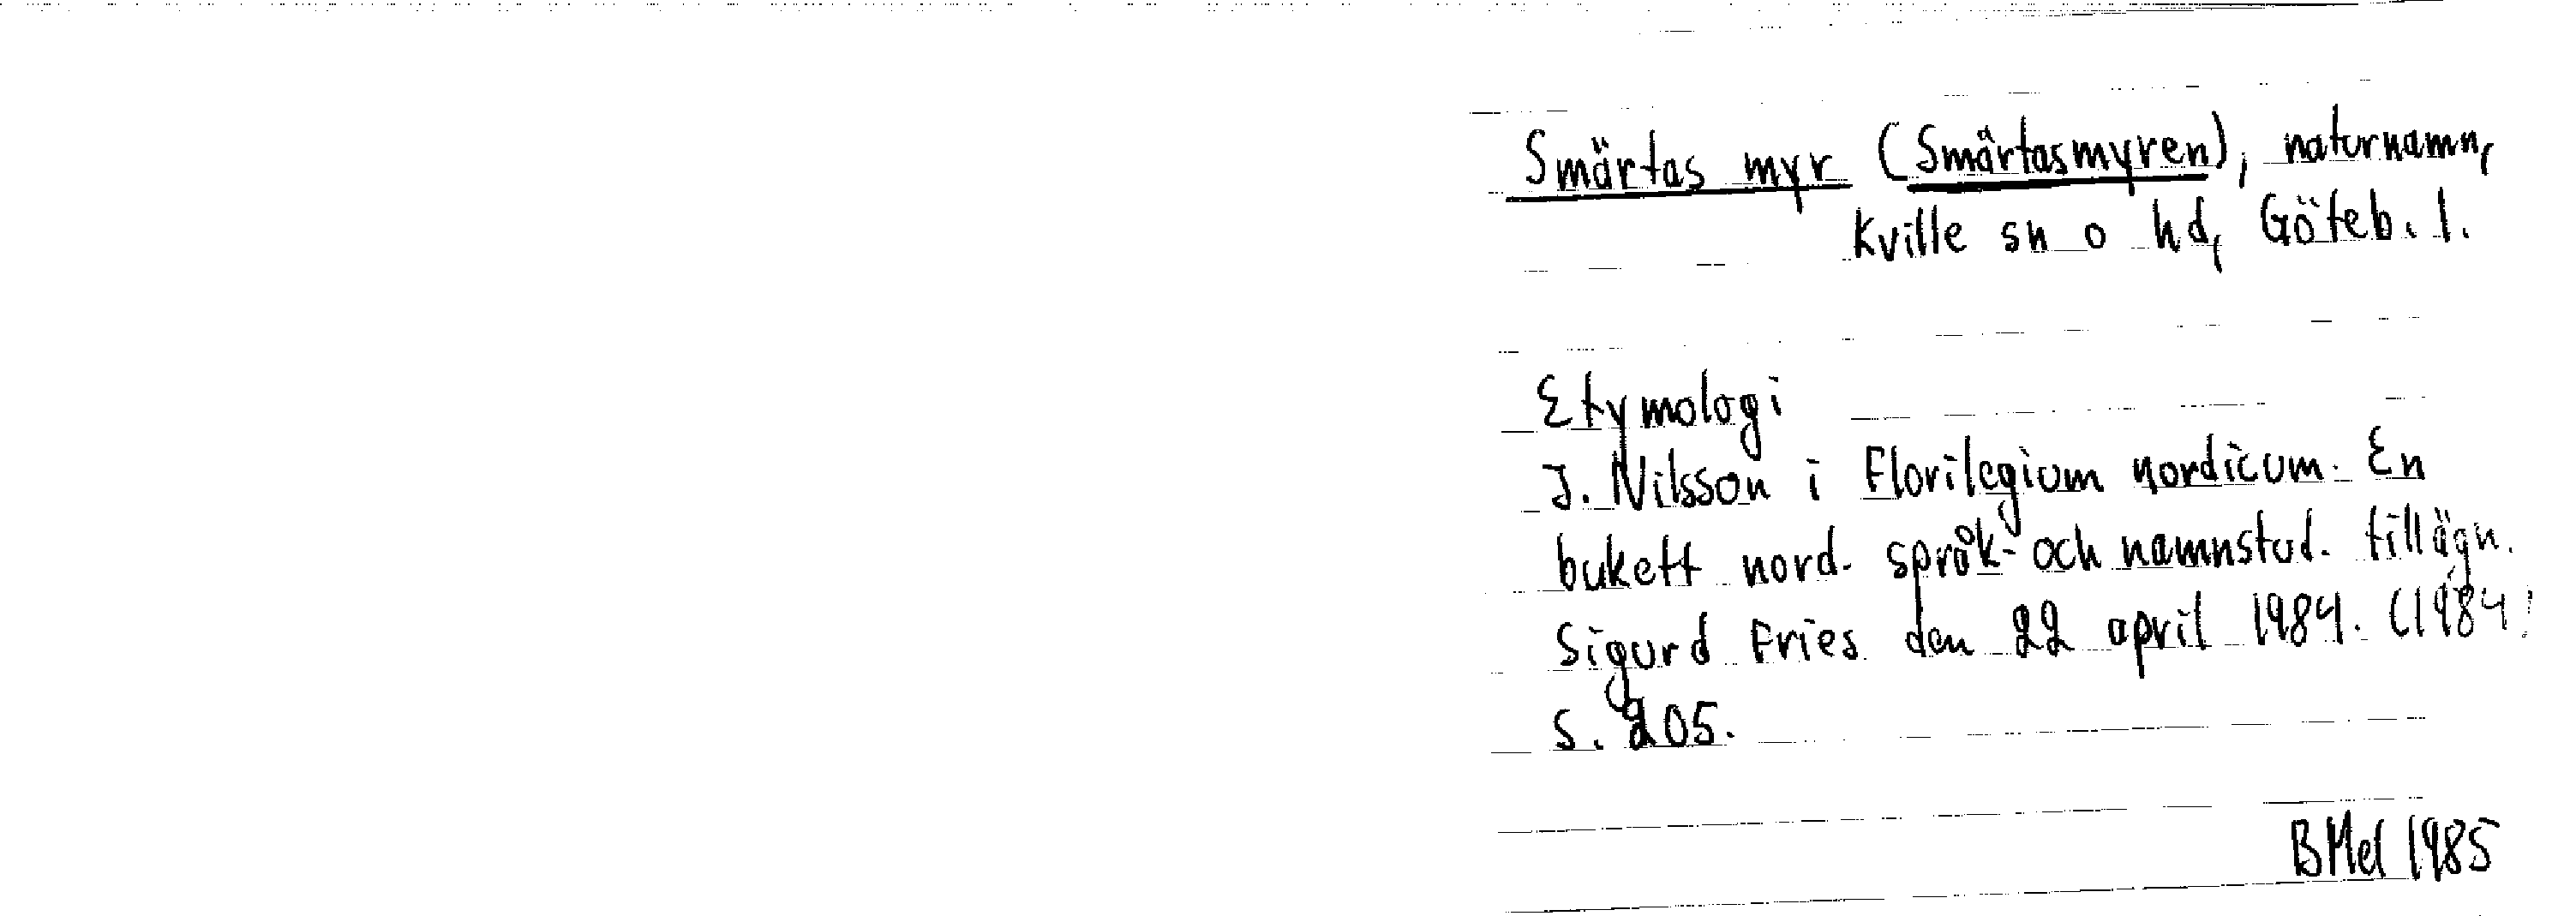 Smärtas myr (Smärtasmyren), naturnamn,
Kville sn o hd, Göteb. l.
Etymologi
J. Nilsson i Florilegium nordicum. En
bukett nord. språk- och namnstud. tillägn.
Sigurd Fries den 22 april 1984. (1984)
S. 205.
BMel 1985